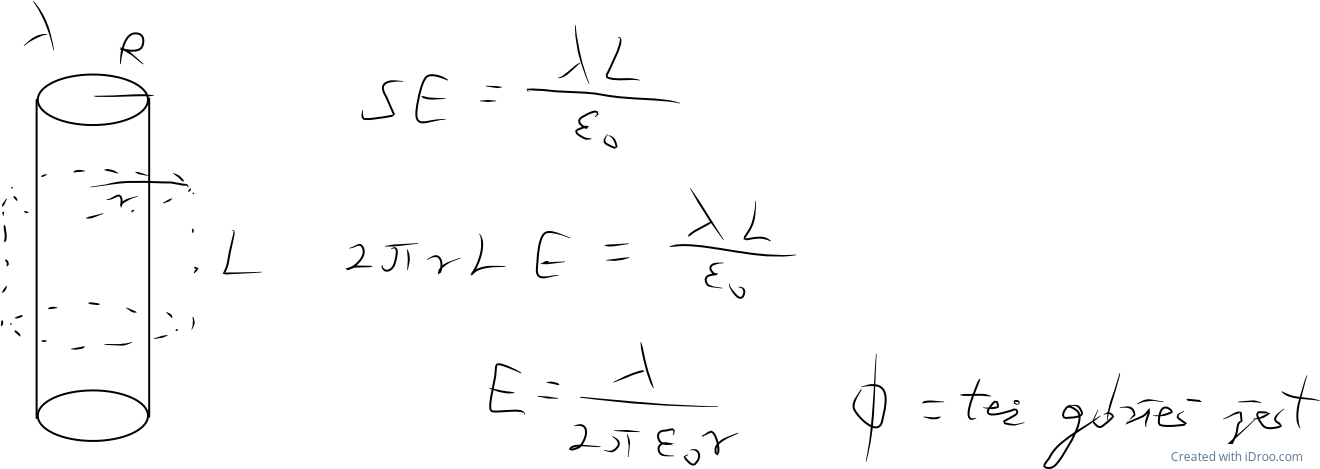 λ
R
SE = λL / ε₀
r
L
2πrL E = λL / ε₀
E = λ / 2πε₀r
ϕ = też gdzieś jest
Created with iDroo.com